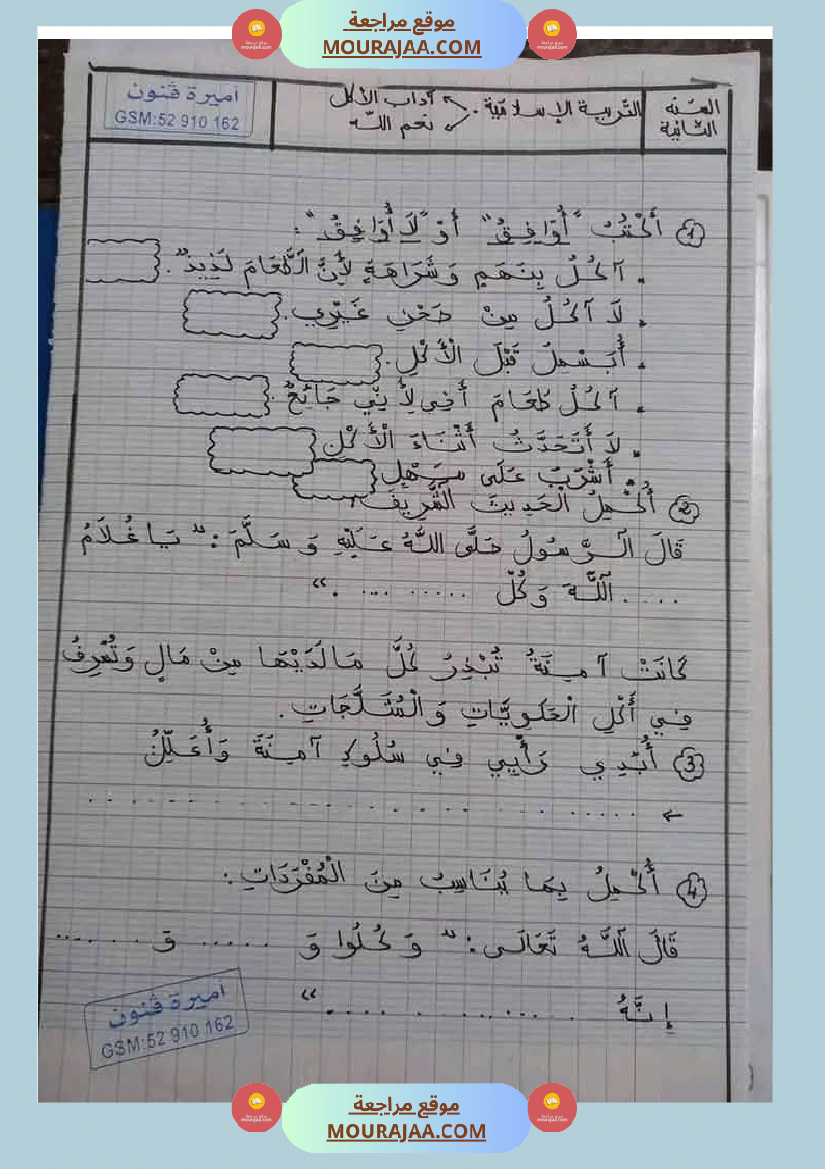 موقع مراجعة
MOURAJAA.COM
السنة الثانية
التربية الإسلامية
آداب الأكل
نعم اللّه
اميرة ڤنون
GSM:52 910 162
1 أَكْتُبُ "أُوَافِقُ" أَوْ "لَا أُوَافِقُ":
. آكُلُ بِنَهَمٍ وَشَرَاهَةٍ لِأَنَّ الطَّعَامَ لَذِيذٌ.
. لَا آكُلُ مِنْ صَحْنِ غَيْرِي.
. أُبَسْمِلُ قَبْلَ الْأَكْلِ.
. آكُلُ طَعَامَ أَخِي لِأَنِّي جَائِعٌ.
. لَا أَتَحَدَّثُ أَثْنَاءَ الْأَكْلِ
. أَشْرَبُ عَلَى مَهْلٍ
2 أُكْمِلُ الحَدِيثَ الشَّرِيفَ:
قَالَ الرَّسُولُ صَلَّى اللَّهُ عَلَيْهِ وَسَلَّمَ: " يَا غُلَامُ
..... اللَّهَ وَكُلْ ..... ... ... . "
كَانَتْ آمِنَةُ تُبَذِّرُ كُلَّ مَا لَدَيْهَا مِنْ مَالٍ وَتُسْرِفُ
فِي أَكْلِ الْحَلَوِيَّاتِ وَالْمُثَلَّجَاتِ.
3 أُبْدِي رَأْيِي فِي سُلُوكِ آمِنَةَ وَأُعَلِّلُ
← ........................
4 أُكْمِلُ بِمَا يُنَاسِبُ مِنَ الْمُفْرَدَاتِ:
قَالَ اللَّهُ تَعَالَى: " وَكُلُوا وَ ........ وَ ........
إِنَّهُ ............... "
اميرة ڤنون
GSM:52 910 162
موقع مراجعة
MOURAJAA.COM